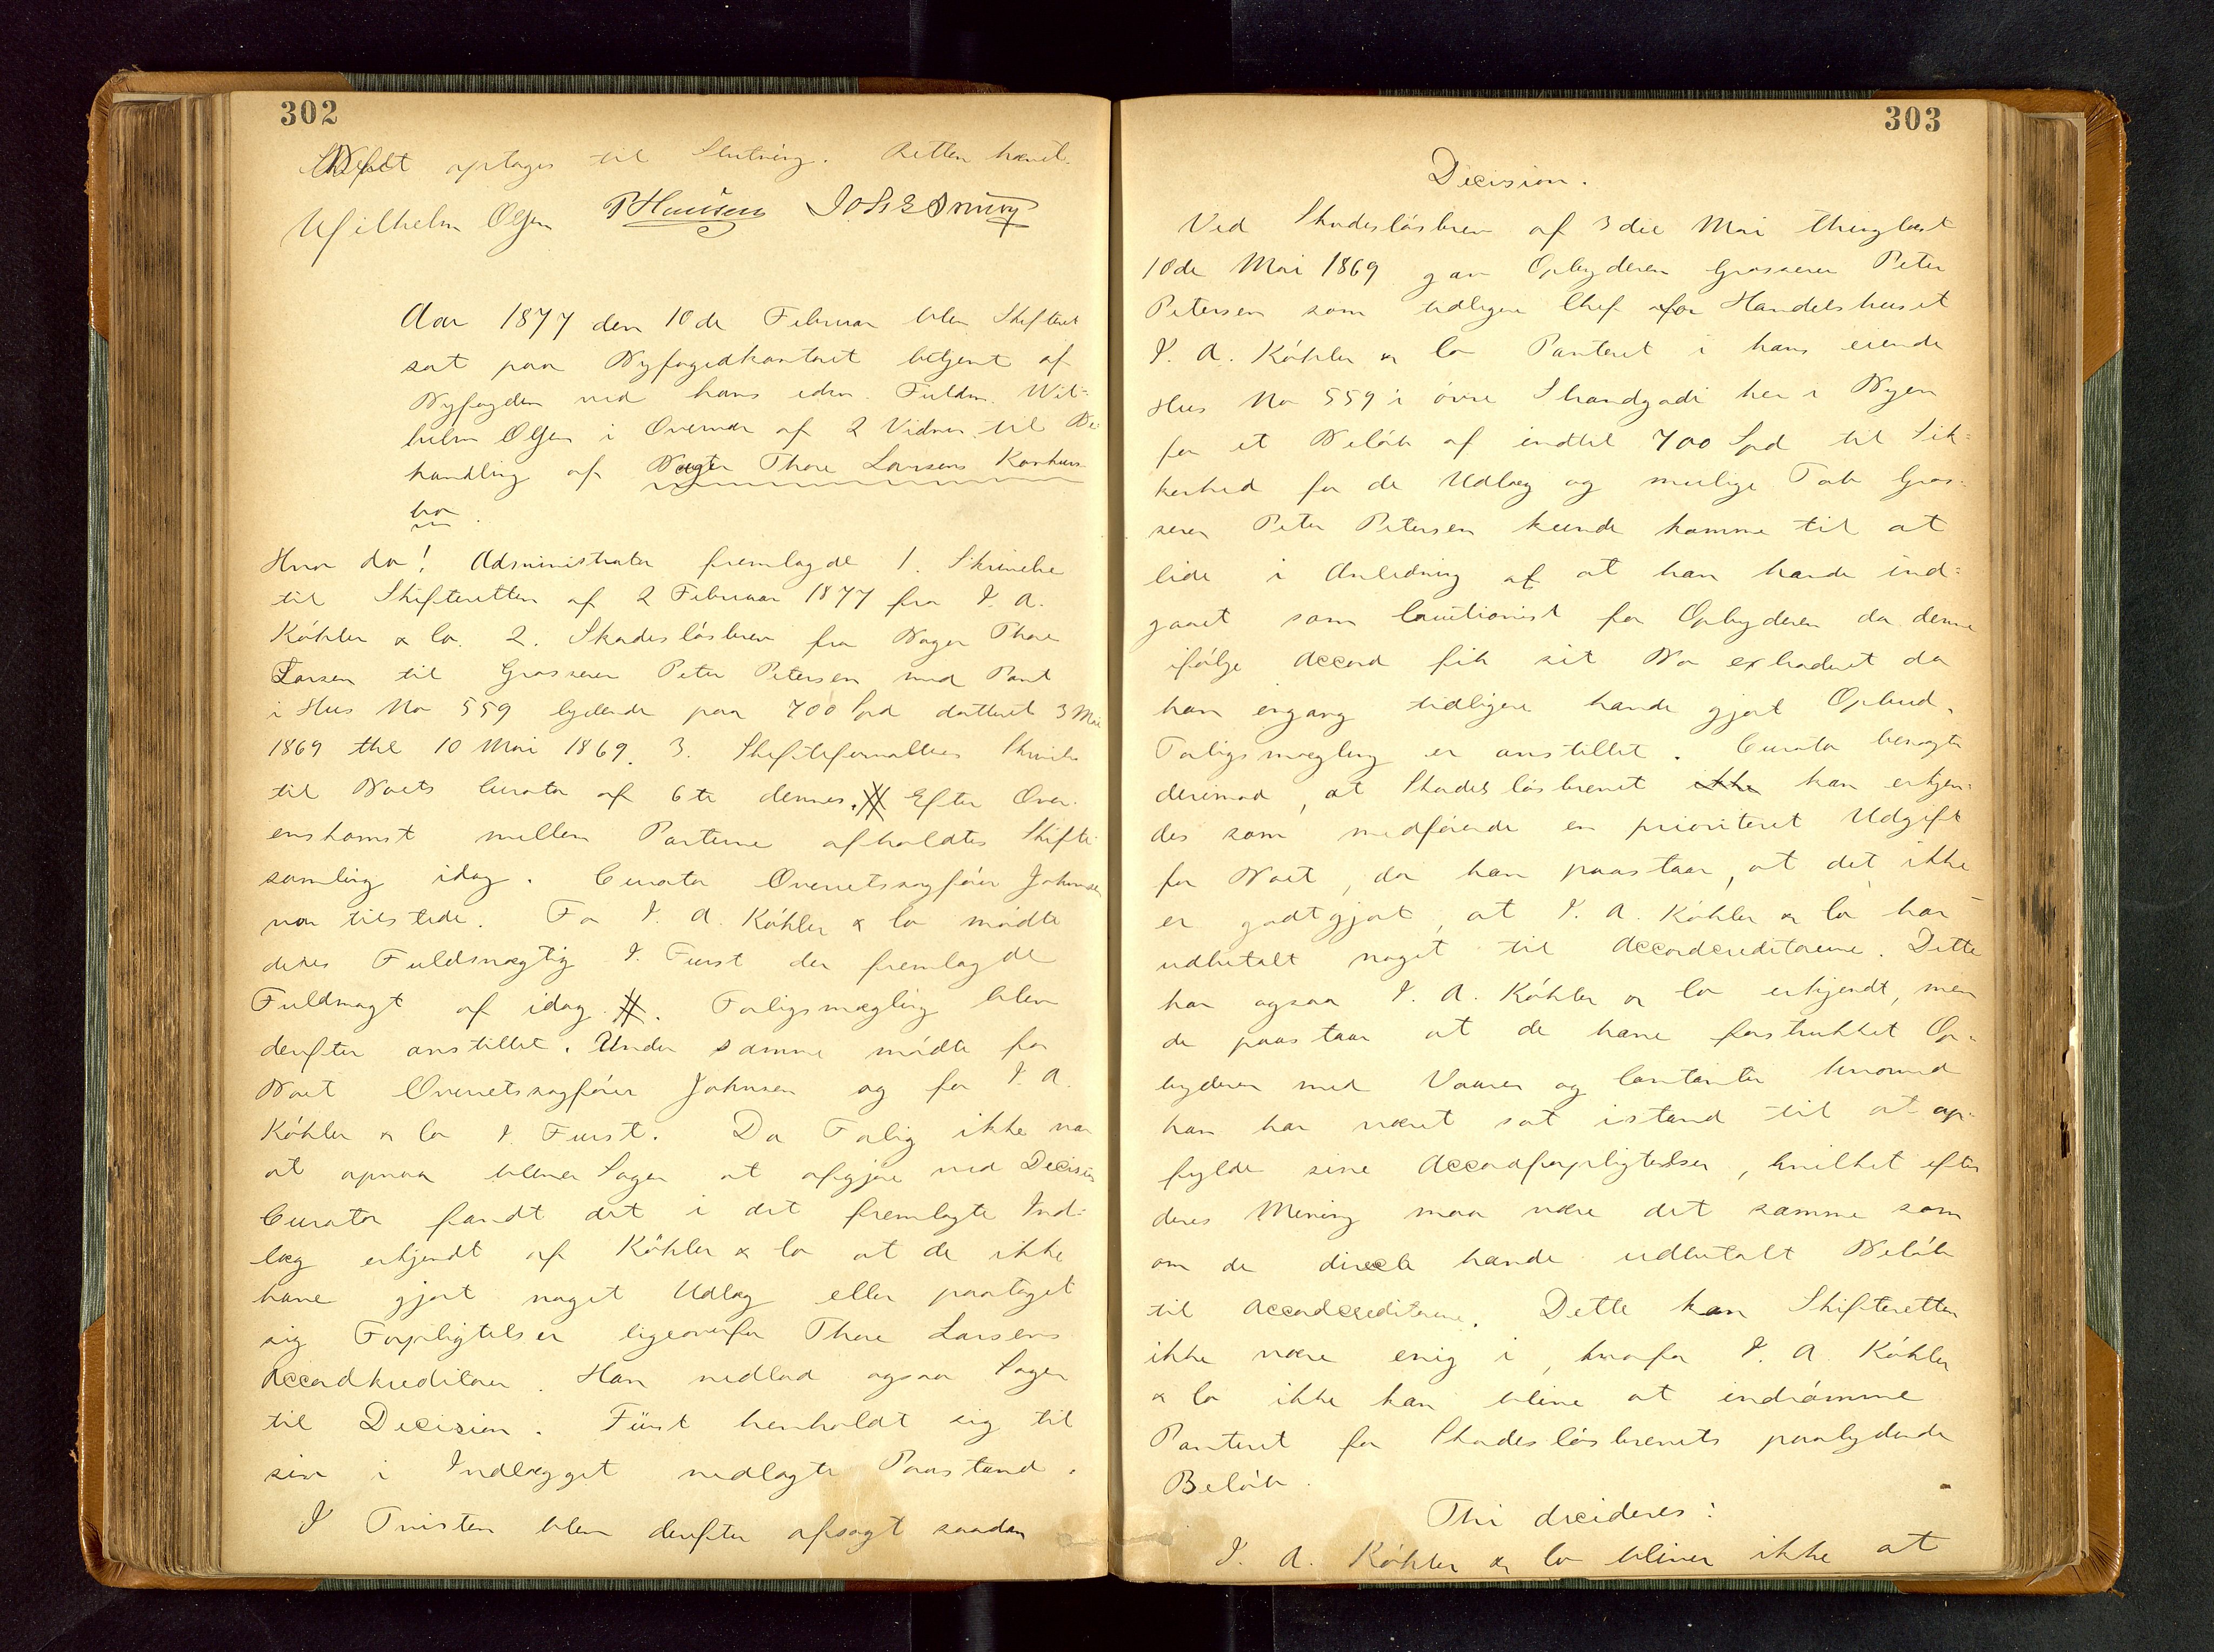 302
optages til Slutning. Retten hævet.
Wilhelm Olsen P Hansen
Aar 1877 den 10de Februar blev Skifteret
sat paa Byfogedkontoret betjent af
Byfogden ved hans edsv. Fuldm. Wil=
helm Olsen i Overvær af 2 Vidner til Be-
handling af Bager Thore Larsens Konkurs
bo.
Hvor da! Administrator fremlagde 1. Skrivelse
til Skifteretten af 2 Februar 1877 fra I. A.
Köhler & Co. 2. Skadesløsbrev fra Bager Thore
Larsen til Grosserer Peter Petersen med Pant
i Hus No 559 lydende paa 700 Spd datteret 3 Mai
1869 thl 10 Mai 1869. 3. Skifteforvalteres Skrivelse
til Boets Curator af 6te dennes. # Efter Over-
enskomst mellem Parterne afholdtes Skifte-
samling idag. Curator Overretssagfører Johnsen
var tilstede. For I. A. Köhler & Co mødte
deres Fuldmægtig I. Furst der fremlagde
Fuldmagt af idag #. Forligsmægling blev
derefter anstillet. Under samme mødte for
Boet Overretssagfører Johnsen og for I. A.
Köhler & Co I. Furst. Da Forlig ikke var
at opnaa bliver Sagen at afgjøre ved Decision
Curator fandt det i det fremlagte Ind=
læg erkjendt af Köhler & Co at de ikke
have gjort noget Udlæg eller paataget
sig Forpligtelser ligeoverfor Thore Larsens
Accordkreditorer. Han nedlod ogsaa Sagen
til Decision. Fürst henholdt sig til
sin i Indlægget nedlagte Paastand.
I Tvisten blev derefter afsagt saadan
303
Decision.
Ved Skadesløsbrev af 3die Mai thinglæst
10de Mai 1869 gav Opbyderen Grosserer Peter
Petersen som tidligere Chef for Handelshuset
I. A. Köhler & Co Panteret i hans eiende
Hus No 559 i øvre Strandgade her i Byen
for et Beløb af indtil 700 Spd til Sik=
kerhed for de Udlæg og mulige Tab Gros-
serer Peter Petersen kunde komme til at
lide i Anledning af at han havde ind=
gaaet som Cautionist for Opbyderen da denne
ifølge Accord fik sit Bo extraderet da
han engang tidligere havde gjort Opbud.
Forligsmægling er anstillet. Curator benægter
derimod, at Skadesløsbrevet ikke kan erkjen-
des som medførende en prioriteret Udgift
for Boet, da han paastaar, at det ikke
er godtgjort, at I. A. Köhler & Co har
udbetalt noget til Accordcreditorerne. Dette
har ogsaa I. A. Köhler & Co erkjendt, men
de paastaar at de have forstrukket Op-
byderen med Varer og Contanter hvorved
han har været sat istand til at op-
fylde sine Accordforpligtelser, hvilket efter
deres Mening maa være det samme som
om de directe havde udbetalt Beløb
til Accordcreditorerne. Dette kan Skifteretten
ikke være enig i, hvorfor I. A. Köhler
& Co ikke kan blive at indrømme
Panteret for Skadesløsbrevets paalydende
Beløb.
Thi decideres:
I. A. Köhler & Co bliver ikke at